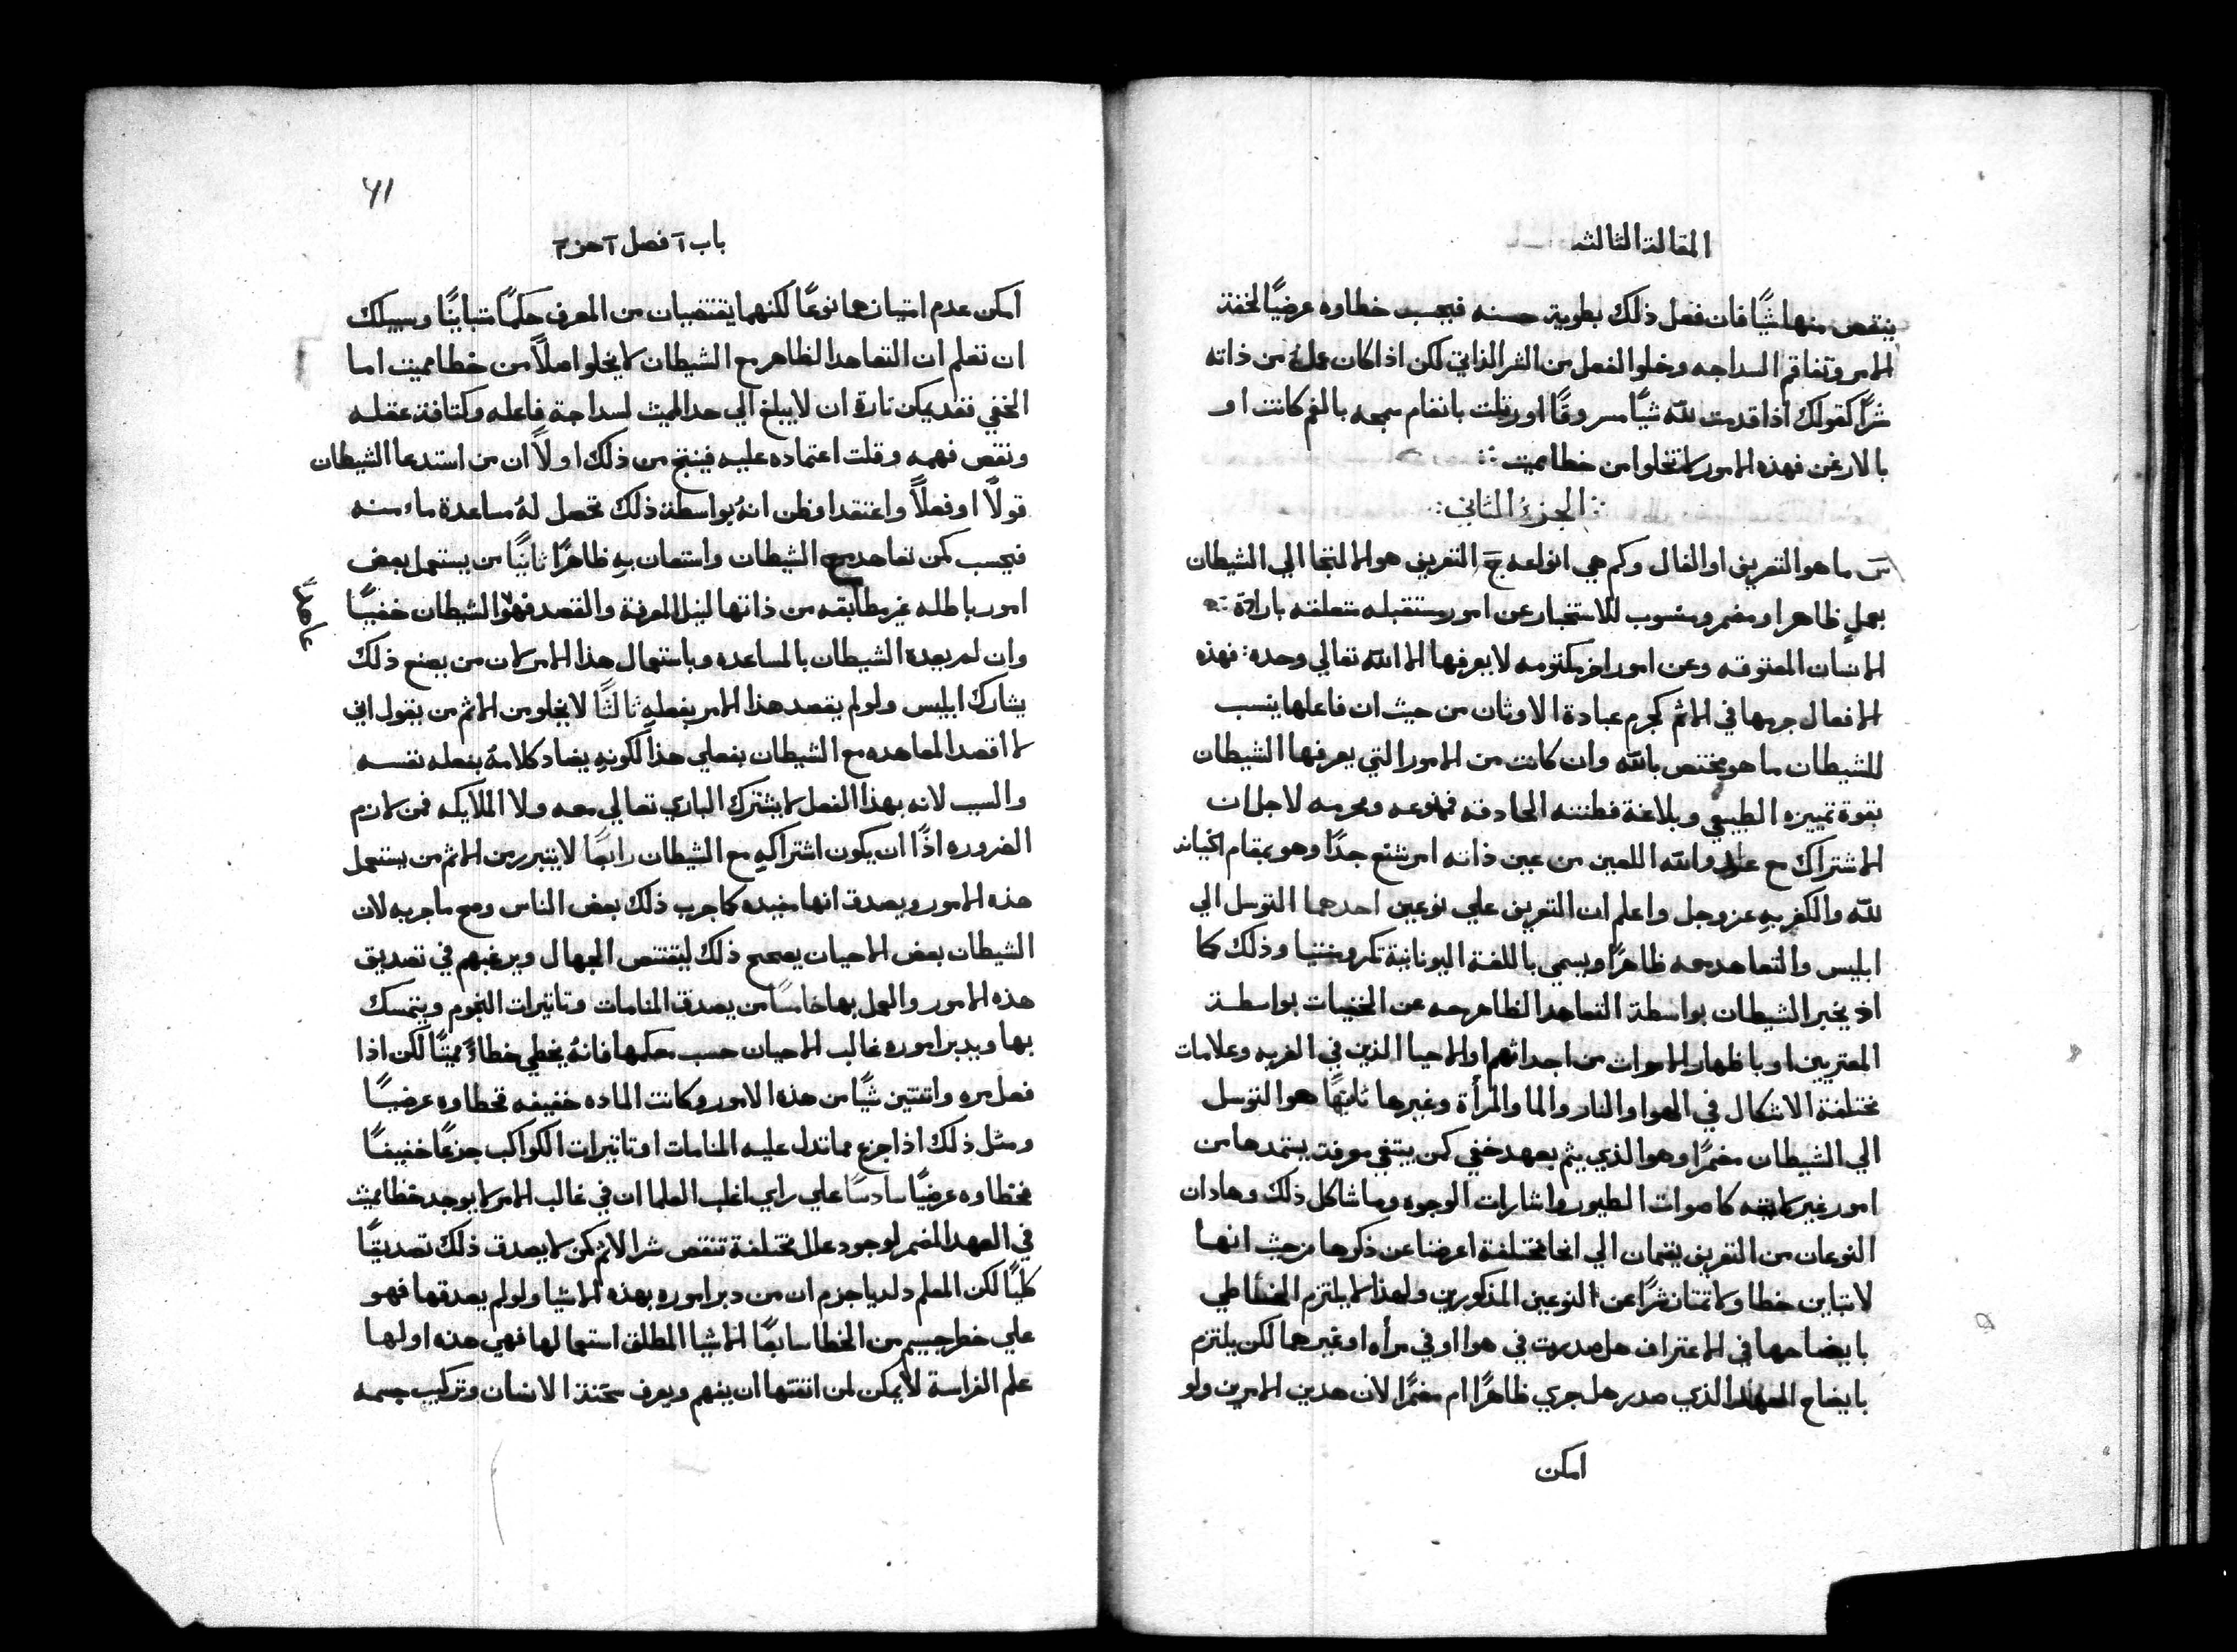 المقالة الثالثه
ينقص منها شيًا فان فعل ذلك بطوية حسنه فيحسب خطاوه عرضيًا لخفة
الامر وتفاقم السداجه وخلوا الفعل من الشر الذاتي لكن اذا كان عمله من ذاته
شرًا كقولك اذا قدمت لله شيًا مسروقًا او رتلت بانغام سمجه بالفم كانت او
بالارغن فهذه الامور لا تخلوا من خطا مميت ::
:الجزءُ الثاني:
سَ ما هو التعريف او الفال وكم هي انواعه جَ التعريف هو الالتجا الي الشيطان
بعملٍ ظاهر او مضمر ومنسوب للاستخبار عن امور مستقبله متعلقه بارادة
الانسان المعتوقه وعن امور اخر مكتومه لا يعرفها الا الله تعالي وحده: فهذه
الافعال جرمها في الاثم كجرم عبادة الاوثان من حيث ان فاعلها ينسب
للشيطان ما هو مختص بالله وان كانت من الامور التي يعرفها الشيطان
بقوة تمييزه الطبيعي وبلاغة فطنته الحادقه فممنوعه ومحرمه لاجل ان
الاشتراك مع عدو الله اللعين من عين ذاته امر شنع جدًا وهو بمقام الخيانه
لله والكفر بهِ عز وجل واعلم ان التعريف علي نوعين احدهما التوسل الي
ابليس والتعاهد معه ظاهرًا ويسمي باللغة اليونانية نكرومنتيا وذلك كما
اذ يخبر الشيطان بواسطة التعاهد الظاهر معه عن الخفيات بواسطة
المعتريين او باظهار الاموات من اجداثهم او الاحيا الذين في الغربه وعلامات
مختلفة الاشكال في الهوا والنار والما والمرأة وغيرها ثانيًا هو التوسل
الي الشيطان مضمرًا وهو الذي يتم بعهد خفي كمن يبتغي معرفة يستمدها من
امور غير لايقه كاصوات الطيور واشارات الوجوه وما شاكل ذلك وهادان
النوعان من التعريف يقسمان الي انحا مختلفة اعرضنا عن ذكرها من حيث انها
لا تتباين خطا ولا تمتاز شرًا عن النوعين المذكورين ولهذا لا يلتزم الخاطي
بايضاحها في الاعتراف هل صدرت في هوا او في مراه او غيرهما لكن يلتزم
بايضاح العهد الذي صدر هل جري ظاهرًا ام مضمرًا لان هدين الامرين ولو
امكن
باب آ فصل آ جز ٢
امكن عدم امتيازهما نوعًا لكنهما يقتضيان من المعرف حكمًا متباينًا وسبيلك
ان تعلم ان التعاهد الظاهر مع الشيطان لا يخلوا اصلاً من خطا مميت اما
الخفي فقد يمكن تارة ان لا يبلغ الي حد المميت لسداجة فاعله وكثافة عقله
ونقص فهمه وقلت اعتماده عليه فينتج من ذلك اولاً ان من استدعا الشيطان
قولًا او فعلاً واعتقد او ظن انهُ بواسطة ذلك تحصل لهُ مساعدة ما منه
فيحسب كمن تعاهد مع الشيطان واستعان بهِ ظاهرًا ثانيًا من يستعمل بعض
امور باطله غير مطابقه من ذاتها لنيل المعرفة والقصد فهو الشيطان خفيًا
عاهد
وان لم يعده الشيطان بالمساعده وباستعمال هذا الامر لان من يصنع ذلك
يشارك ابليس ولو لم يقصد هذا الامر بفعلهِ ثالثًا لا يخلو من الاثم من يقول اني
لا اقصد المعاهده مع الشيطان بفعلي هذا لكونهِ يضاد كلامهُ بفعله نفسه
والسبب لانه بهذا الفعل لا يشترك الباري تعالي معه ولا الملايكه فمن لازم
الضروره اذًا ان يكون اشتراكهِ مع الشيطان رابعًا لا يتبرر من الاثم من يستعمل
هذه الامور ويصدق انها مفيده كما جرب ذلك بعض الناس ومع ما جربه لان
الشيطان بعض الاحيان يصحح ذلك ليقتنص الجهال ويرغبهم في تصديق
هذه الامور والعمل بها خامسًا من يصدق المنامات وتاثيرات النجوم ويتمسك
بها ويدبر اموره غالب الاحيان حسب حكمها فانهُ يخطي خطاءً مميتًا لكن اذا
فعل مره واثنتين شيًا من هذه الامور وكانت الماده خفيفه فخطاوه عرضيًا
ومثل ذلك اذا جزع مما تدل عليه المنامات او تاثيرات الكواكب جزعًا خفيفًا
فخطاوه عرضيًا سادسًا علي راي اغلب العلما ان في غالب الامر لا يوجد خطا مميت
في العهد المضمر لوجود علل مختلفة تنقص شر الاثم كمن لا يصدق ذلك تصديقًا
كليًا لكن المعلم دلديا جزم ان من دبر اموره بهذه الاشيا ولو لم يصدقها فهو
علي خطر جسيم من الخطا سابعًا الاشيا المطلق استعمالها فهي هذه اولها
علم الفراسة لا يمكن لمن اتقنها ان يفهم ويعرف سحنة الانسان وتركيب جسمه